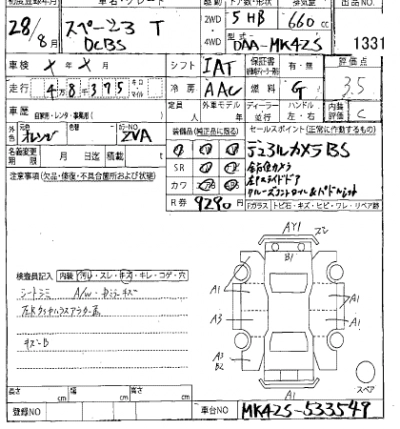 初度登録年月 車名・グレード 駆動 ドア数・形状 排気量 出品NO.
28/8月 スペーシア T DCBS 2WD・4WD 5 HB 660cc
型式 DAA-MK42S 1331
車検 × 年 × 月 シフト IAT 保証書 有・無 評価点
走行 48375 キロ マイル 冷房 AAC 燃料 G 3.5
車歴 自家用・レンタ・事業用( ) 定員 人 外車モデル 年 ディーラー 並行 ハンドル 左・右 内装評価 C
外色 オレンジ カラーNO ZVA 装備品(純正品に限る) セールスポイント(正常に作動するもの)
名義変更期限 月 日迄 積載 t デュアルカメラBS
注意事項(欠品・修復・不具合箇所および状態) SR 全方位カメラ
カワ 左Pスライドドア
クルーズコントロール&パドルシフト
R券 9290円 Fガラス トビ石・キズ・ヒビ・ワレ・リペア跡
AY1
B1
検査員記入 内装 汚レ・スレ・キズ・キレ・コゲ・穴
シートシミ A/W・キズ
A1 A1
A3 A1
キズ-B
A3 B2 A1
A1 スペア
長さ cm 幅 cm 高さ cm
登録NO 車台NO MK42S-533549